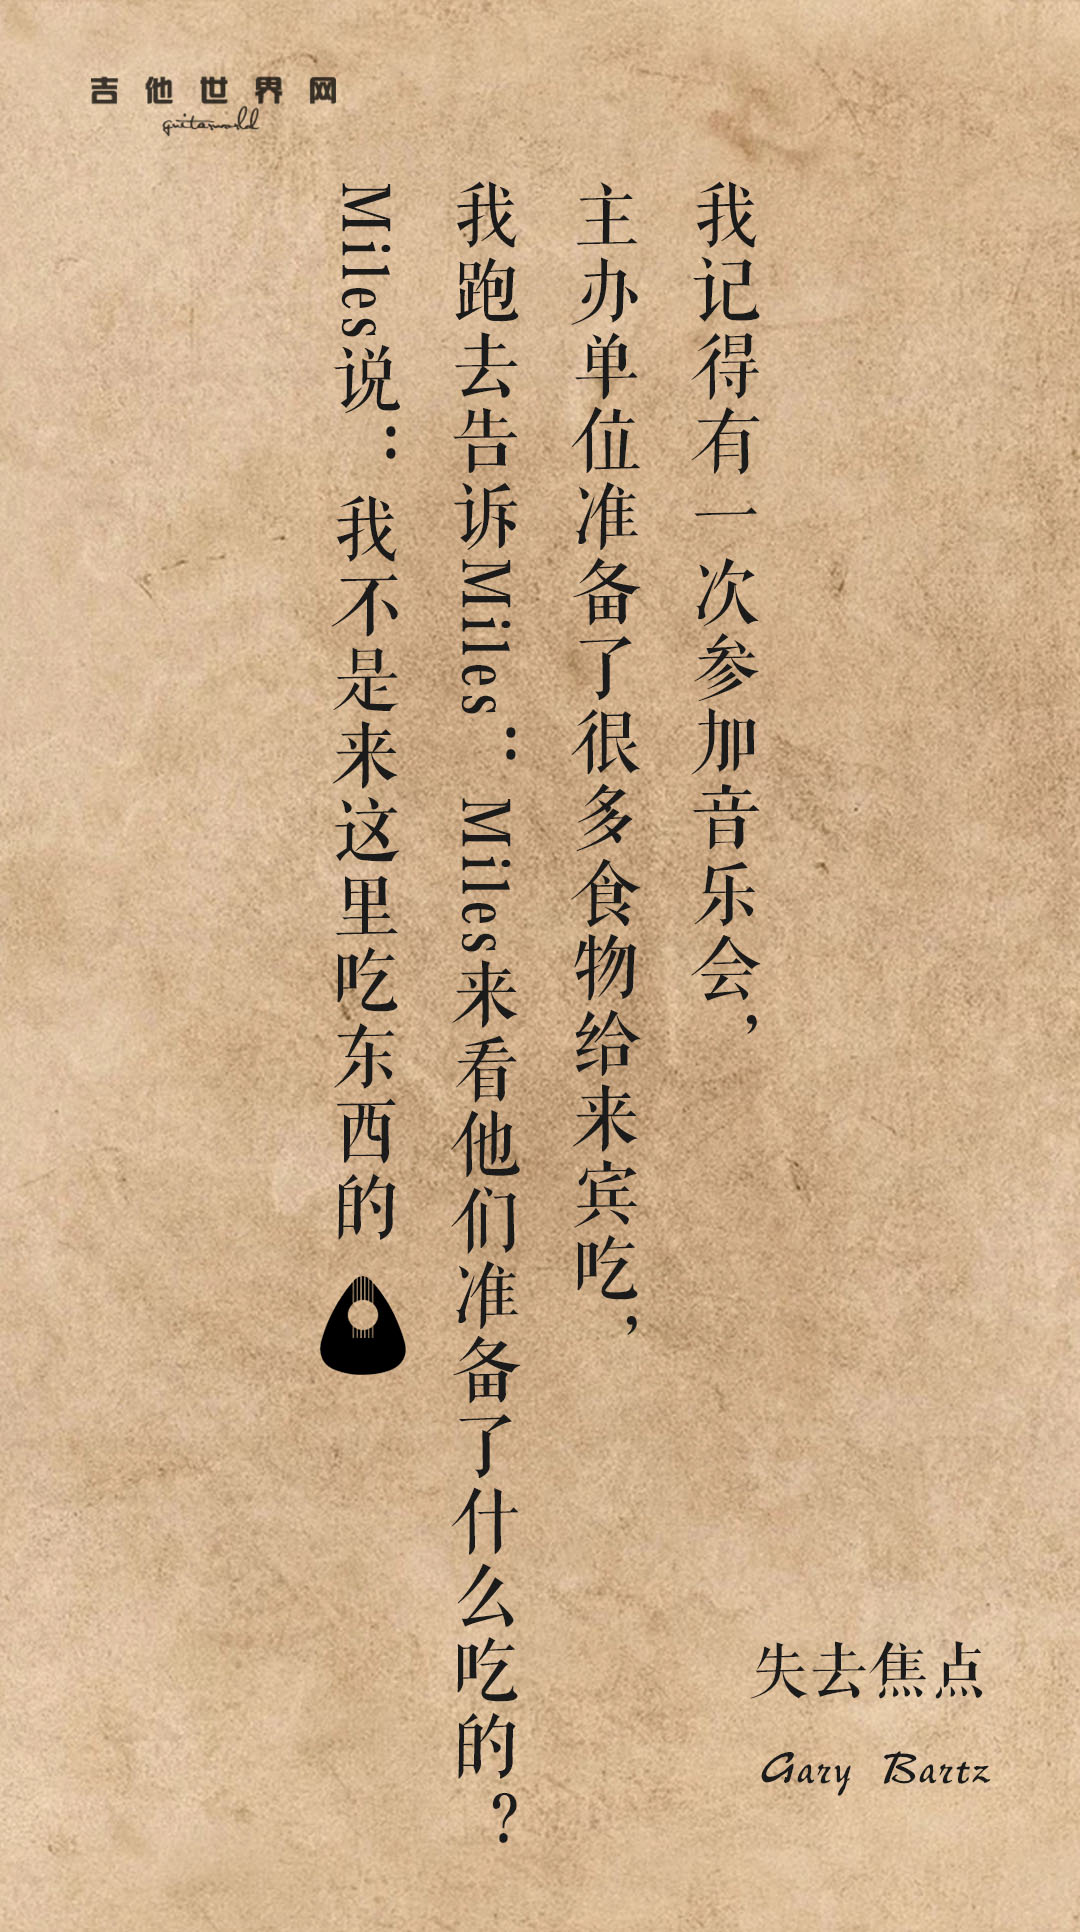 吉他世界网
guitarworld
我记得有一次参加音乐会，
主办单位准备了很多食物给来宾吃，
我跑去告诉Miles：Miles来看他们准备了什么吃的？
Miles说：我不是来这里吃东西的
失去焦点
Gary Bartz